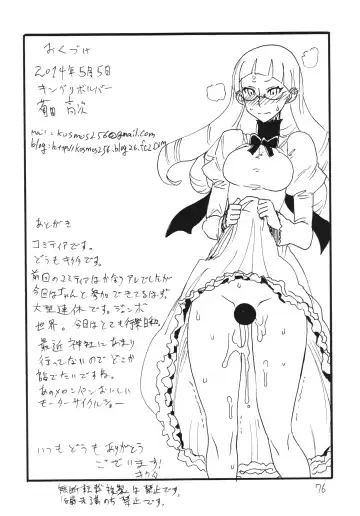 おくづけ
2014年5月5日
キングリボルバー
菊田 育次
mail: kosmos256@gmail.com
blog: http://kosmos256.blog26.fc2.com
あとがき
コミティアです。
どうもキクタです。
前回のコミティアはかなりアレでしたが
今回はちゃんと参加できてるはず
大型連休です。ジャンボ
世界。今日はとても行楽日和
最近神社にあまり
行ってないのでどこか
詣でたいですね。
あのメロンパンおいしい
モーターサイクルショー
いつもどうもありがとう
ございます!
キクタ
無断転載複製は禁止です。
76